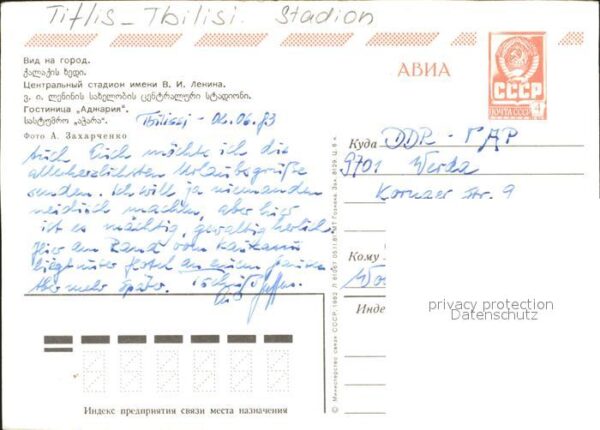 Tiflis - Tbilisi. Stadion
Вид на город.
ქალაქის ხედი.
Центральный стадион имени В. И. Ленина.
ვ. ი. ლენინის სახელობის ცენტრალური სტადიონი.
Гостиница „Аджария".
სასტუმრო „აჭარა".
Фото А. Захарченко
АВИА
СССР
ПОЧТА СССР
4
Tbilissi - 06.83
Auch Euch möchte ich die
allerherzlichsten Urlaubsgrüße
senden. Ich will ja niemanden
neidisch machen, aber hier
ist es mächtig, gewaltig herrlich
Hier am Rand vom Kaukasus
liegt unser Hotel an einem
Aber mehr später.
Куда DDR - ГДР
9701 Werda
Str. 9
Кому
Инде
privacy protection
Datenschutz
© Министерство связи СССР, 1982
Индекс предприятия связи места назначения